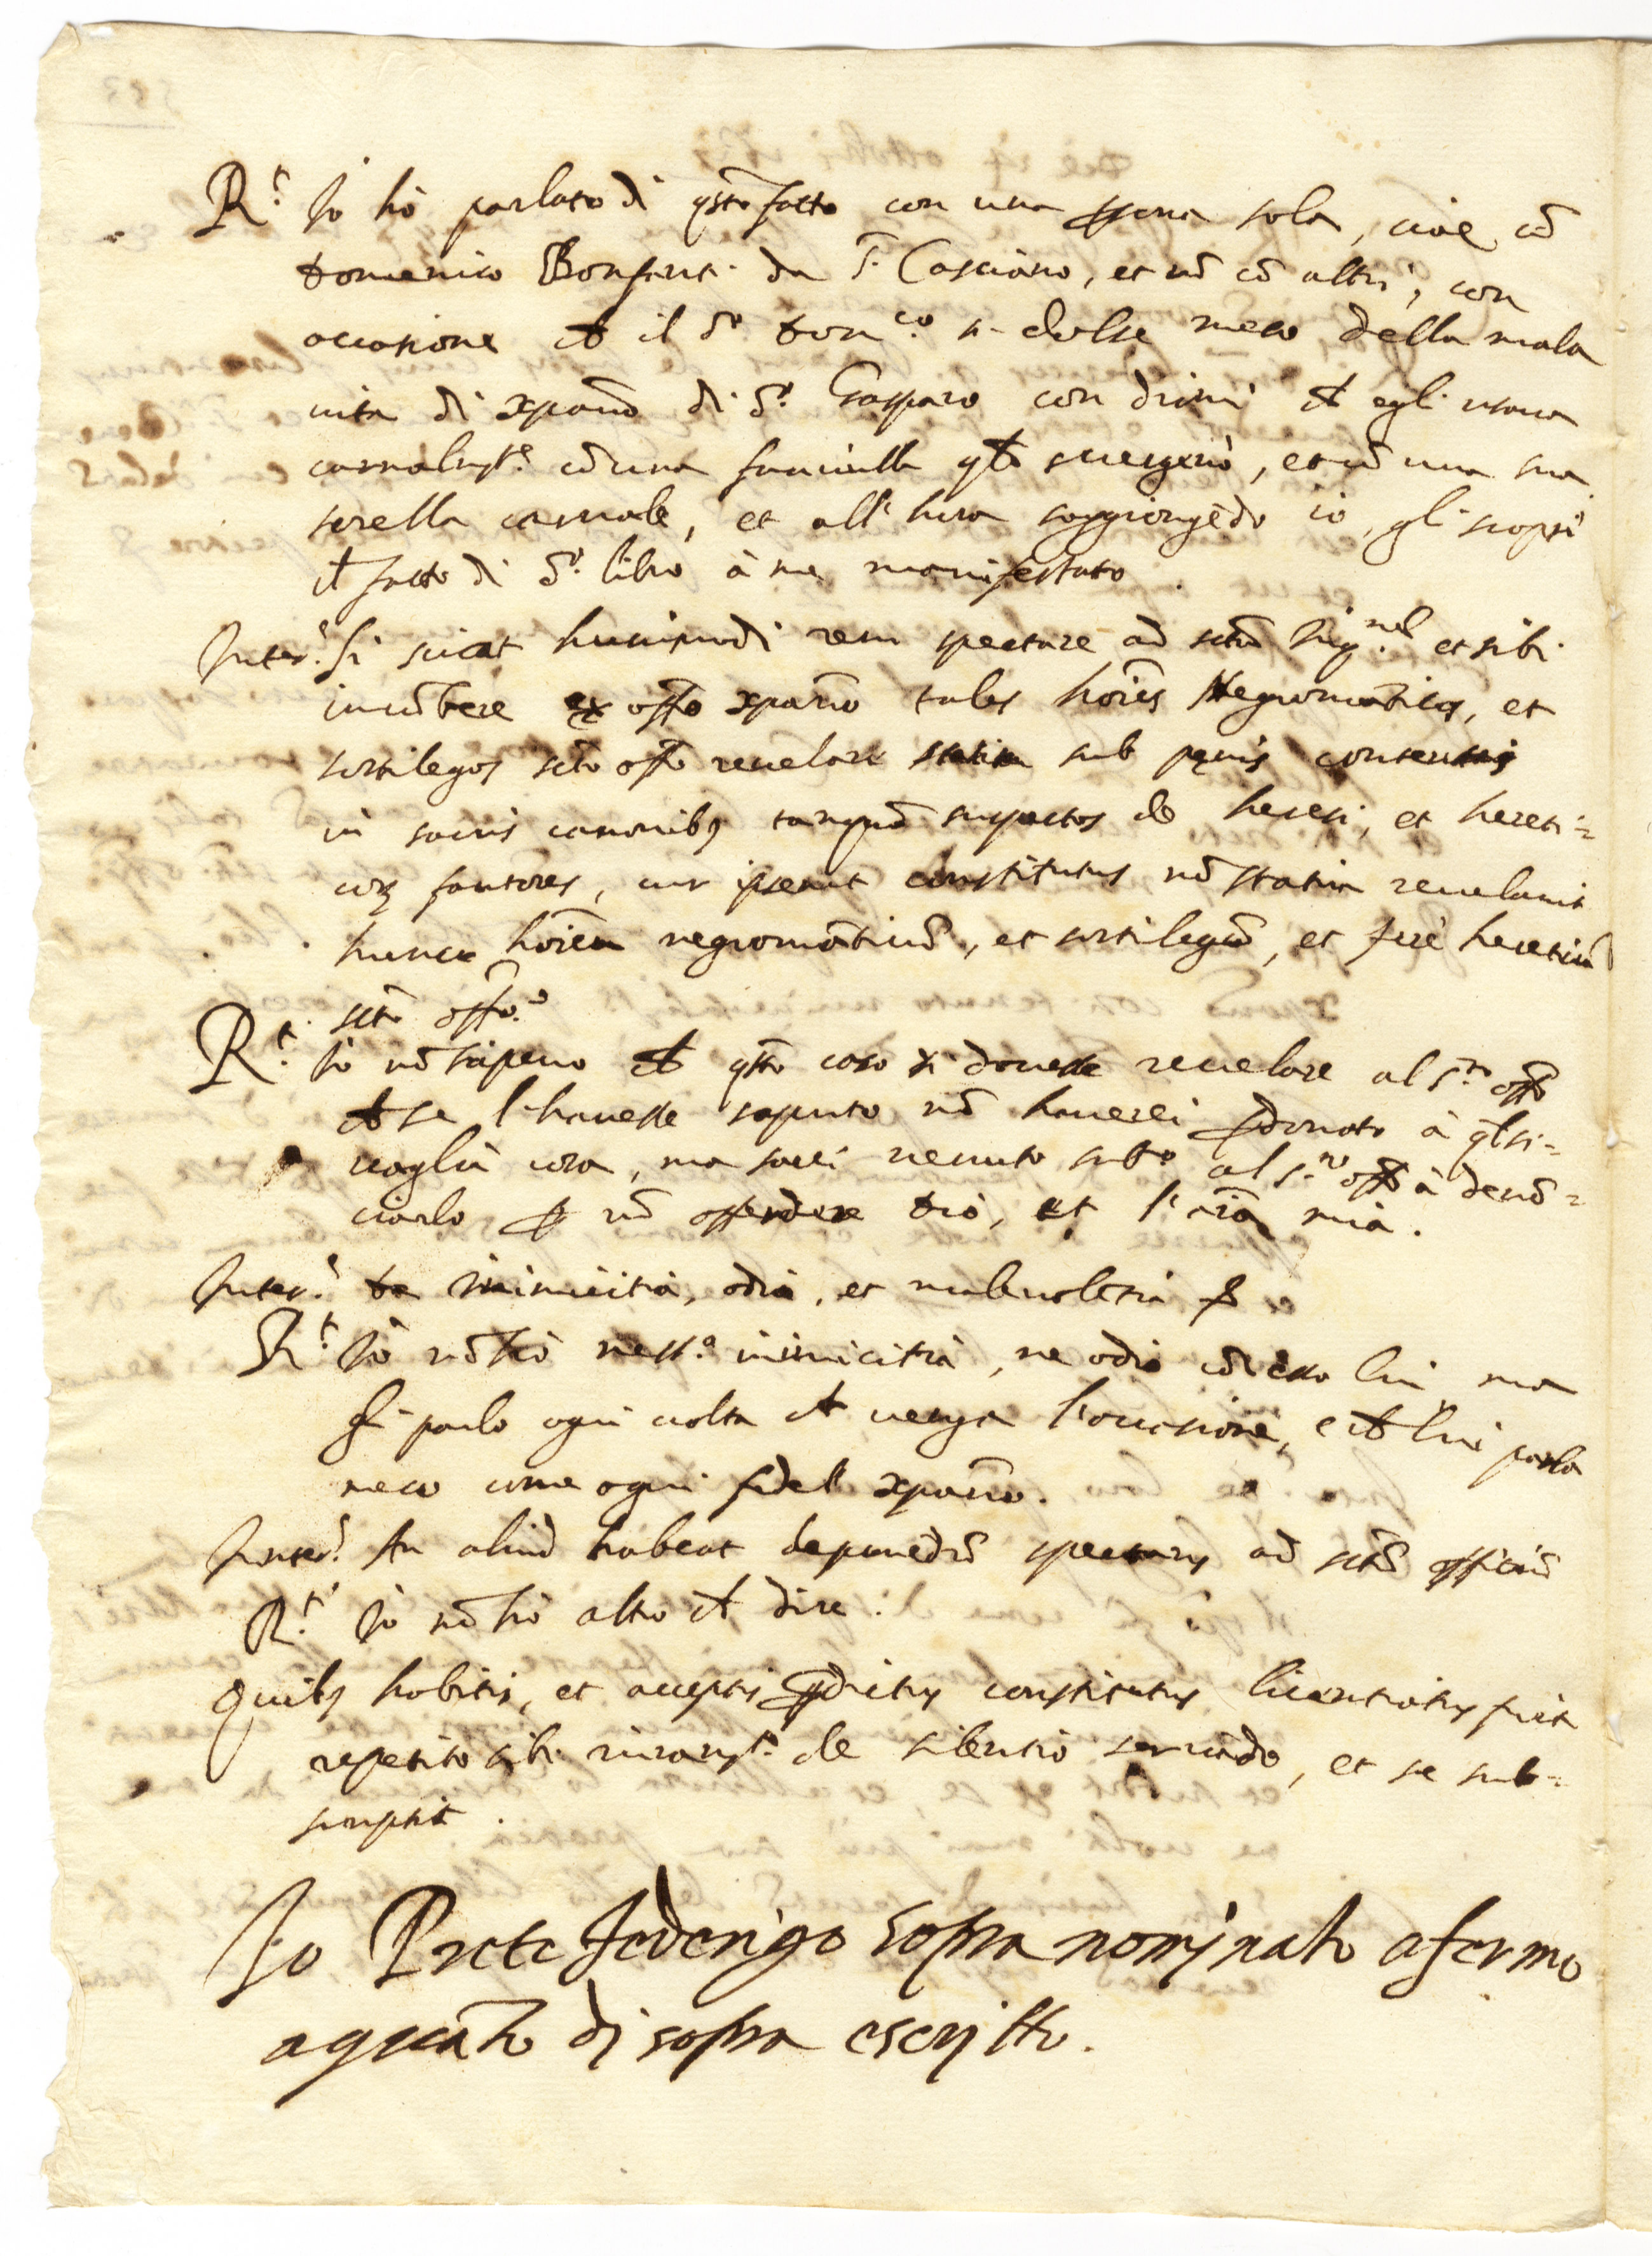 R.t Io hò parlato di q̃sto fatto con una ꝑsona sola, cioè cõ
Domenico Bonsenti da S. Casciano, et nõ cõ altri, con
occasione ch̃ il d.o Dom.co si dolse meco della mala
uita di xpano di d.o Gasparo con dirmi ch̃ egli usaua
carnalm.te cõ una fanciulla, et cõ una sua
sorella carnale, et all'hora soggiongẽdo io, gli scopsi
il fatto di d.o libro à me manifestato.
Inter.s Si sciat huiusmodi rem spectare ad sctũ Inq.nis et sibi
incũbere ex offo xpano tales hoĩes Negromãticos, et
sortilegos scto offo reuelare statim sub pęnis contentis
in sacris canonibꝰ tanquã suspectos de heresi, et hereti=
coꝝ fautores, cur ipsemet constitutus nõ statim reuelauit
hunc hoĩem negromãticũ, et sortilegũ, et ferè hereticũ
scto offo.
R.t Io nõ sapeuo ch̃ q̃sto caso si douesse reuelare al S.to offo
ch̃ se l'hauesse saputo nõ hauerei ꝑdonato à q̃lsi=
uoglia cosa, ma sarei uenuto subto al S.to offo à denõ=
ciarlo ꝑ nõ offendere Dio, et l'aĩa mia.
Inter.s de inimicitia, odio, et maleuolẽtia
R.t Io nõ hò ness.a inimicitia, ne odio cõ esso lui, ma
gli parlo ogni uolta ch̃ uenga l'occasione, e ch̃ lui parla
meco come ogni fidel xpano.
Inter.s An aliud habeat deponẽdũ spectans ad sctũ officiũ
R.t Io nõ hò altro ch̃ dire.
Quibꝰ habitis, et acceptis ꝑdictus constitutus licentiatus fuit
repetito sibi iuram.to de silentio seruãdo, et se sub=
scripsit.
Io Prete Federigo sopra nominato afermo
a quãto di sopra escritto.